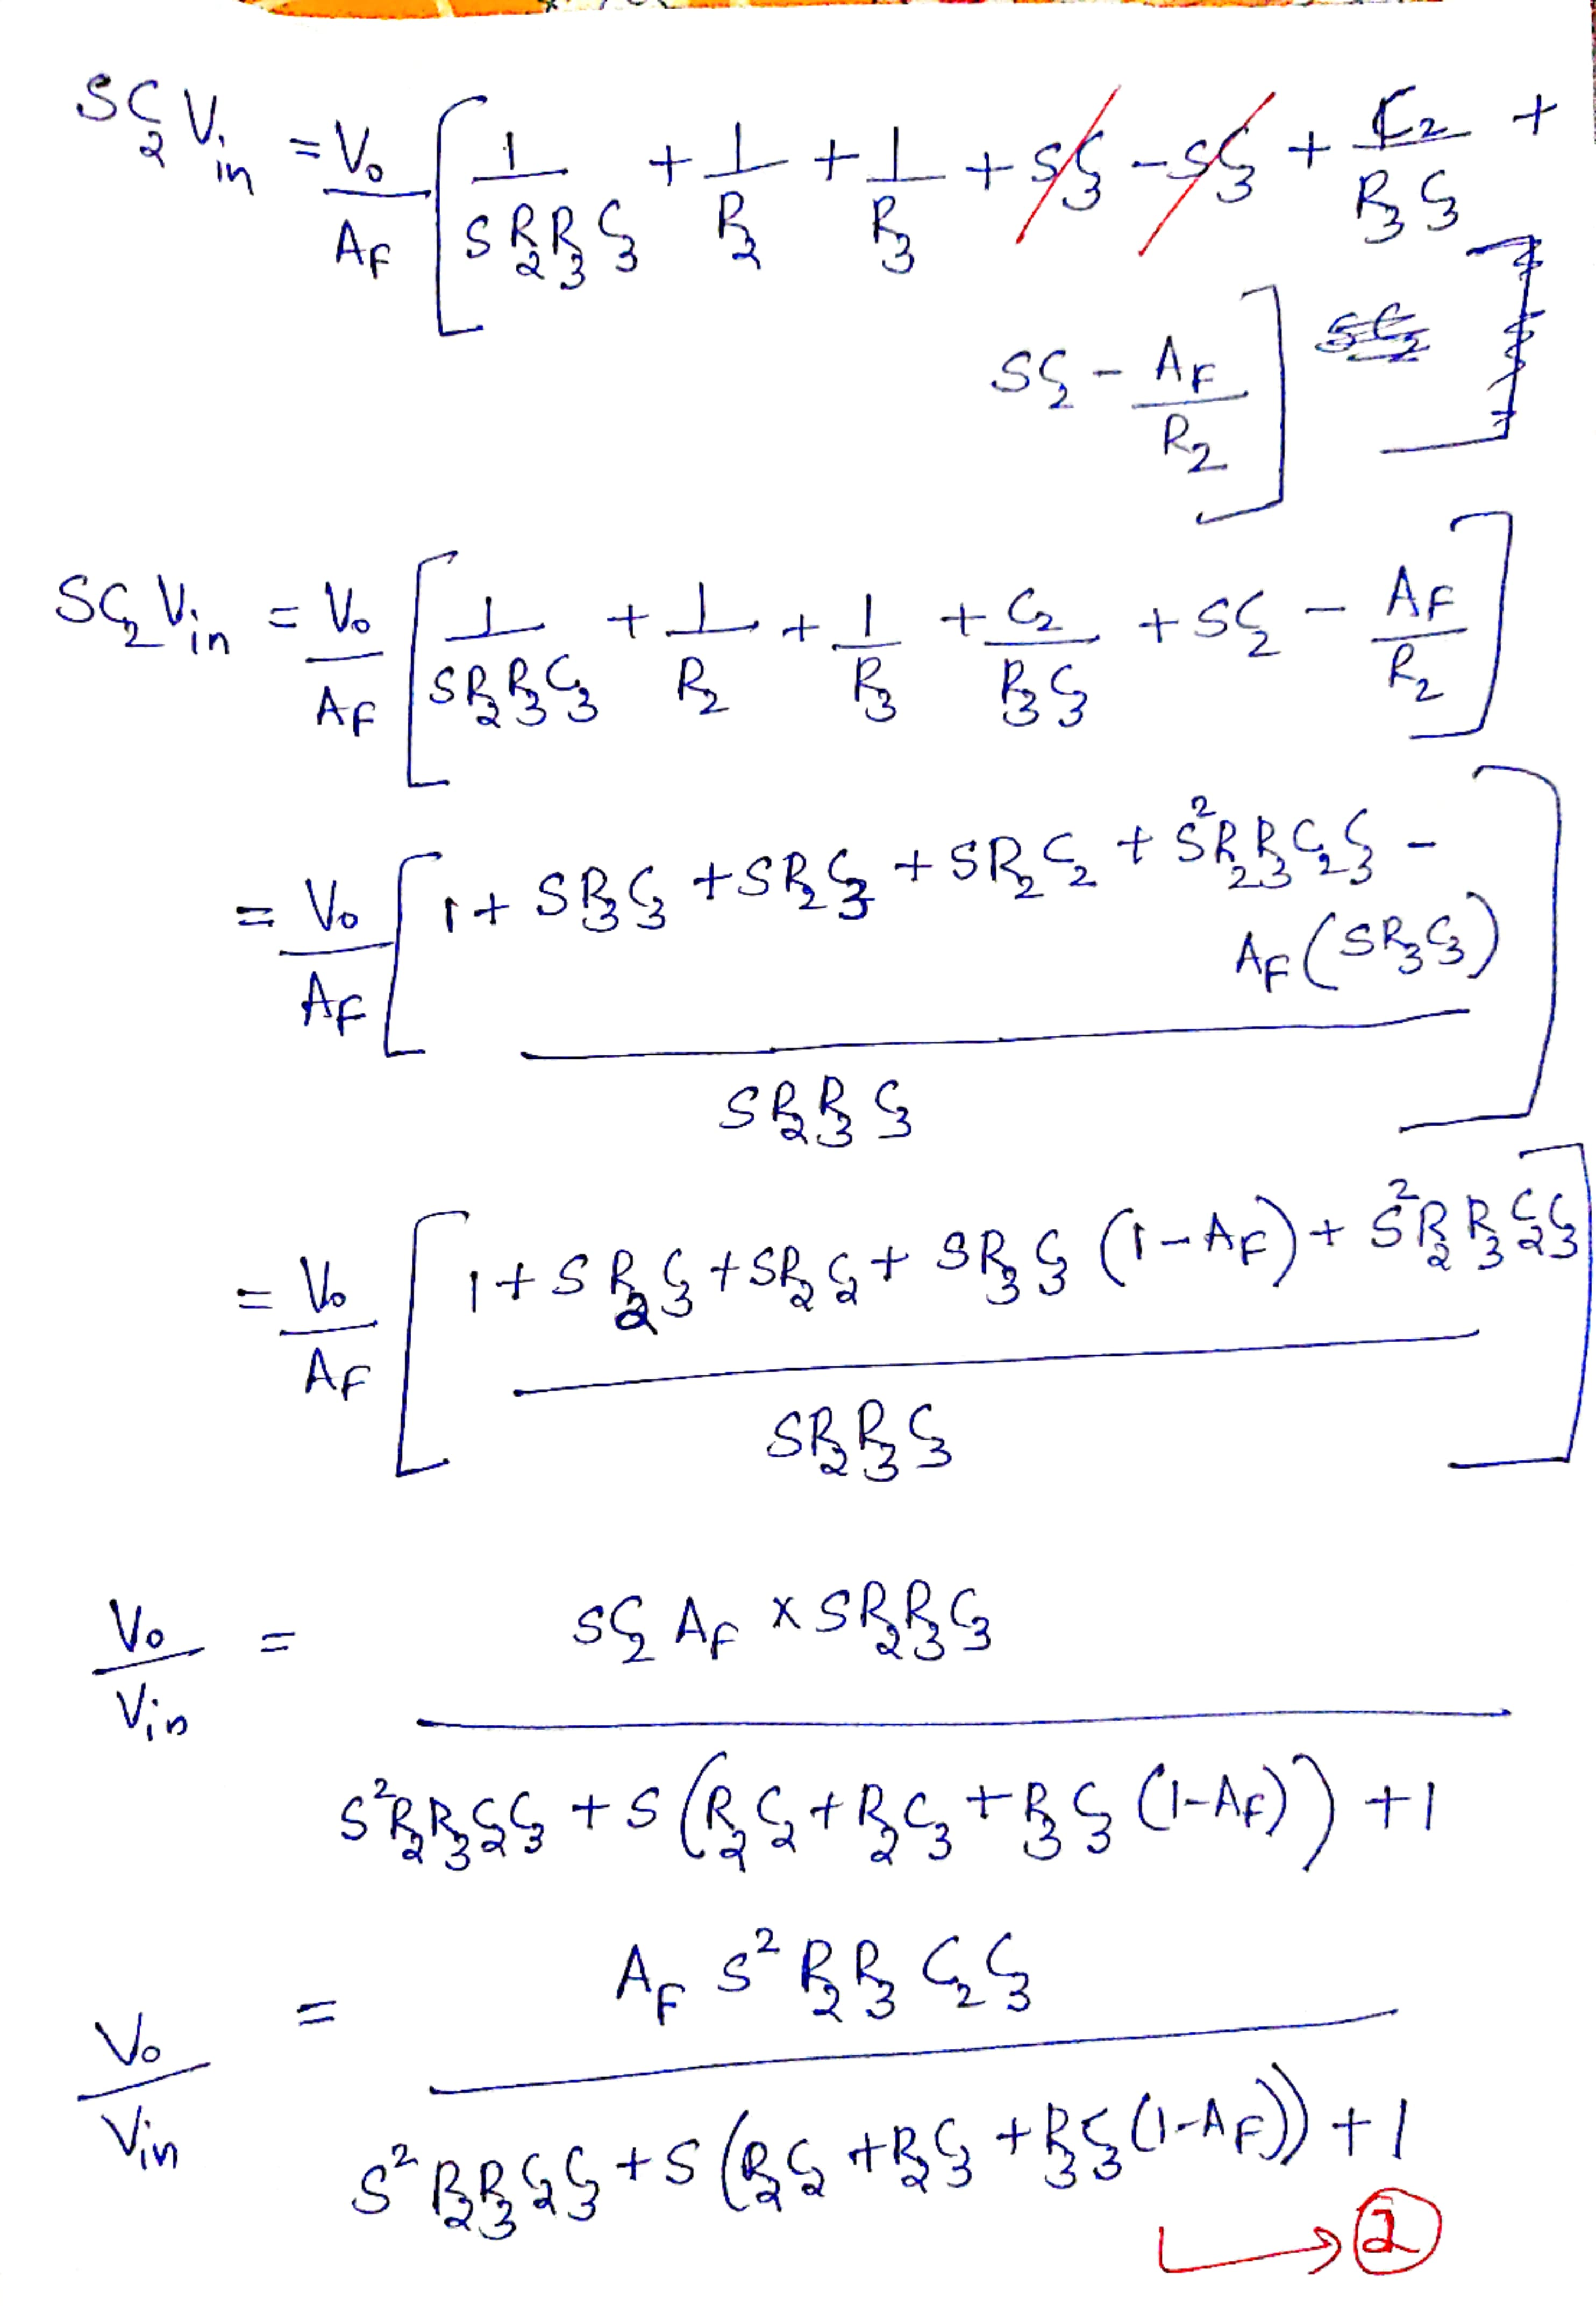 SC₂ Vin = V₀/A_F [ 1/(S R₂R₃C₃) + 1/R₂ + 1/R₃ + SC₃ - SC₃ + C₂/(R₃C₃) +
SC₂ - A_F/R₂ ]
SC₂ Vin = V₀/A_F [ 1/(SR₂R₃C₃) + 1/R₂ + 1/R₃ + C₂/(R₃C₃) + SC₂ - A_F/R₂ ]
= V₀/A_F [ (1 + SR₃C₃ + SR₂C₃ + SR₂C₂ + S²R₂R₃C₂C₃ -
A_F(SR₃C₃)) / (SR₂R₃C₃) ]
= V₀/A_F [ (1 + SR₂C₃ + SR₂C₂ + SR₃C₃ (1-A_F) + S²R₂R₃C₂C₃) / (SR₂R₃C₃) ]
V₀/Vin = (SC₂ A_F × SR₂R₃C₃) / (S²R₂R₃C₂C₃ + S(R₂C₂ + R₂C₃ + R₃C₃ (1-A_F)) + 1)
V₀/Vin = (A_F S² R₂R₃ C₂C₃) / (S² R₂R₃C₂C₃ + S(R₂C₂ + R₂C₃ + R₃C₃(1-A_F)) + 1)
→ ②